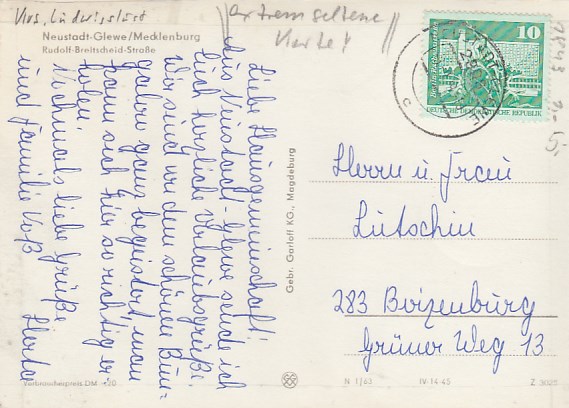 Krs. Ludwigslust
extrem seltene
Karte!
Neustadt-Glewe/Mecklenburg
Rudolf-Breitscheid-Straße
Liebe Hausgemeinschaft!
Aus Neustadt-Glewe sende ich
Euch herzliche Urlaubsgrüße.
Wir sind von dem schönen Bun-
galow ganz begeistert, man
kann sich hier so richtig er-
holen.
Nochmals liebe Grüße
und Familie Voß Herta
Gebr. Garloff KG., Magdeburg
10
DEUTSCHE DEMOKRATISCHE REPUBLIK
5,-
Herrn u. Frau
Lütschin
283 Boizenburg
Grüner Weg 13
Verbraucherpreis DM
N 1/63 IV-14-45 Z